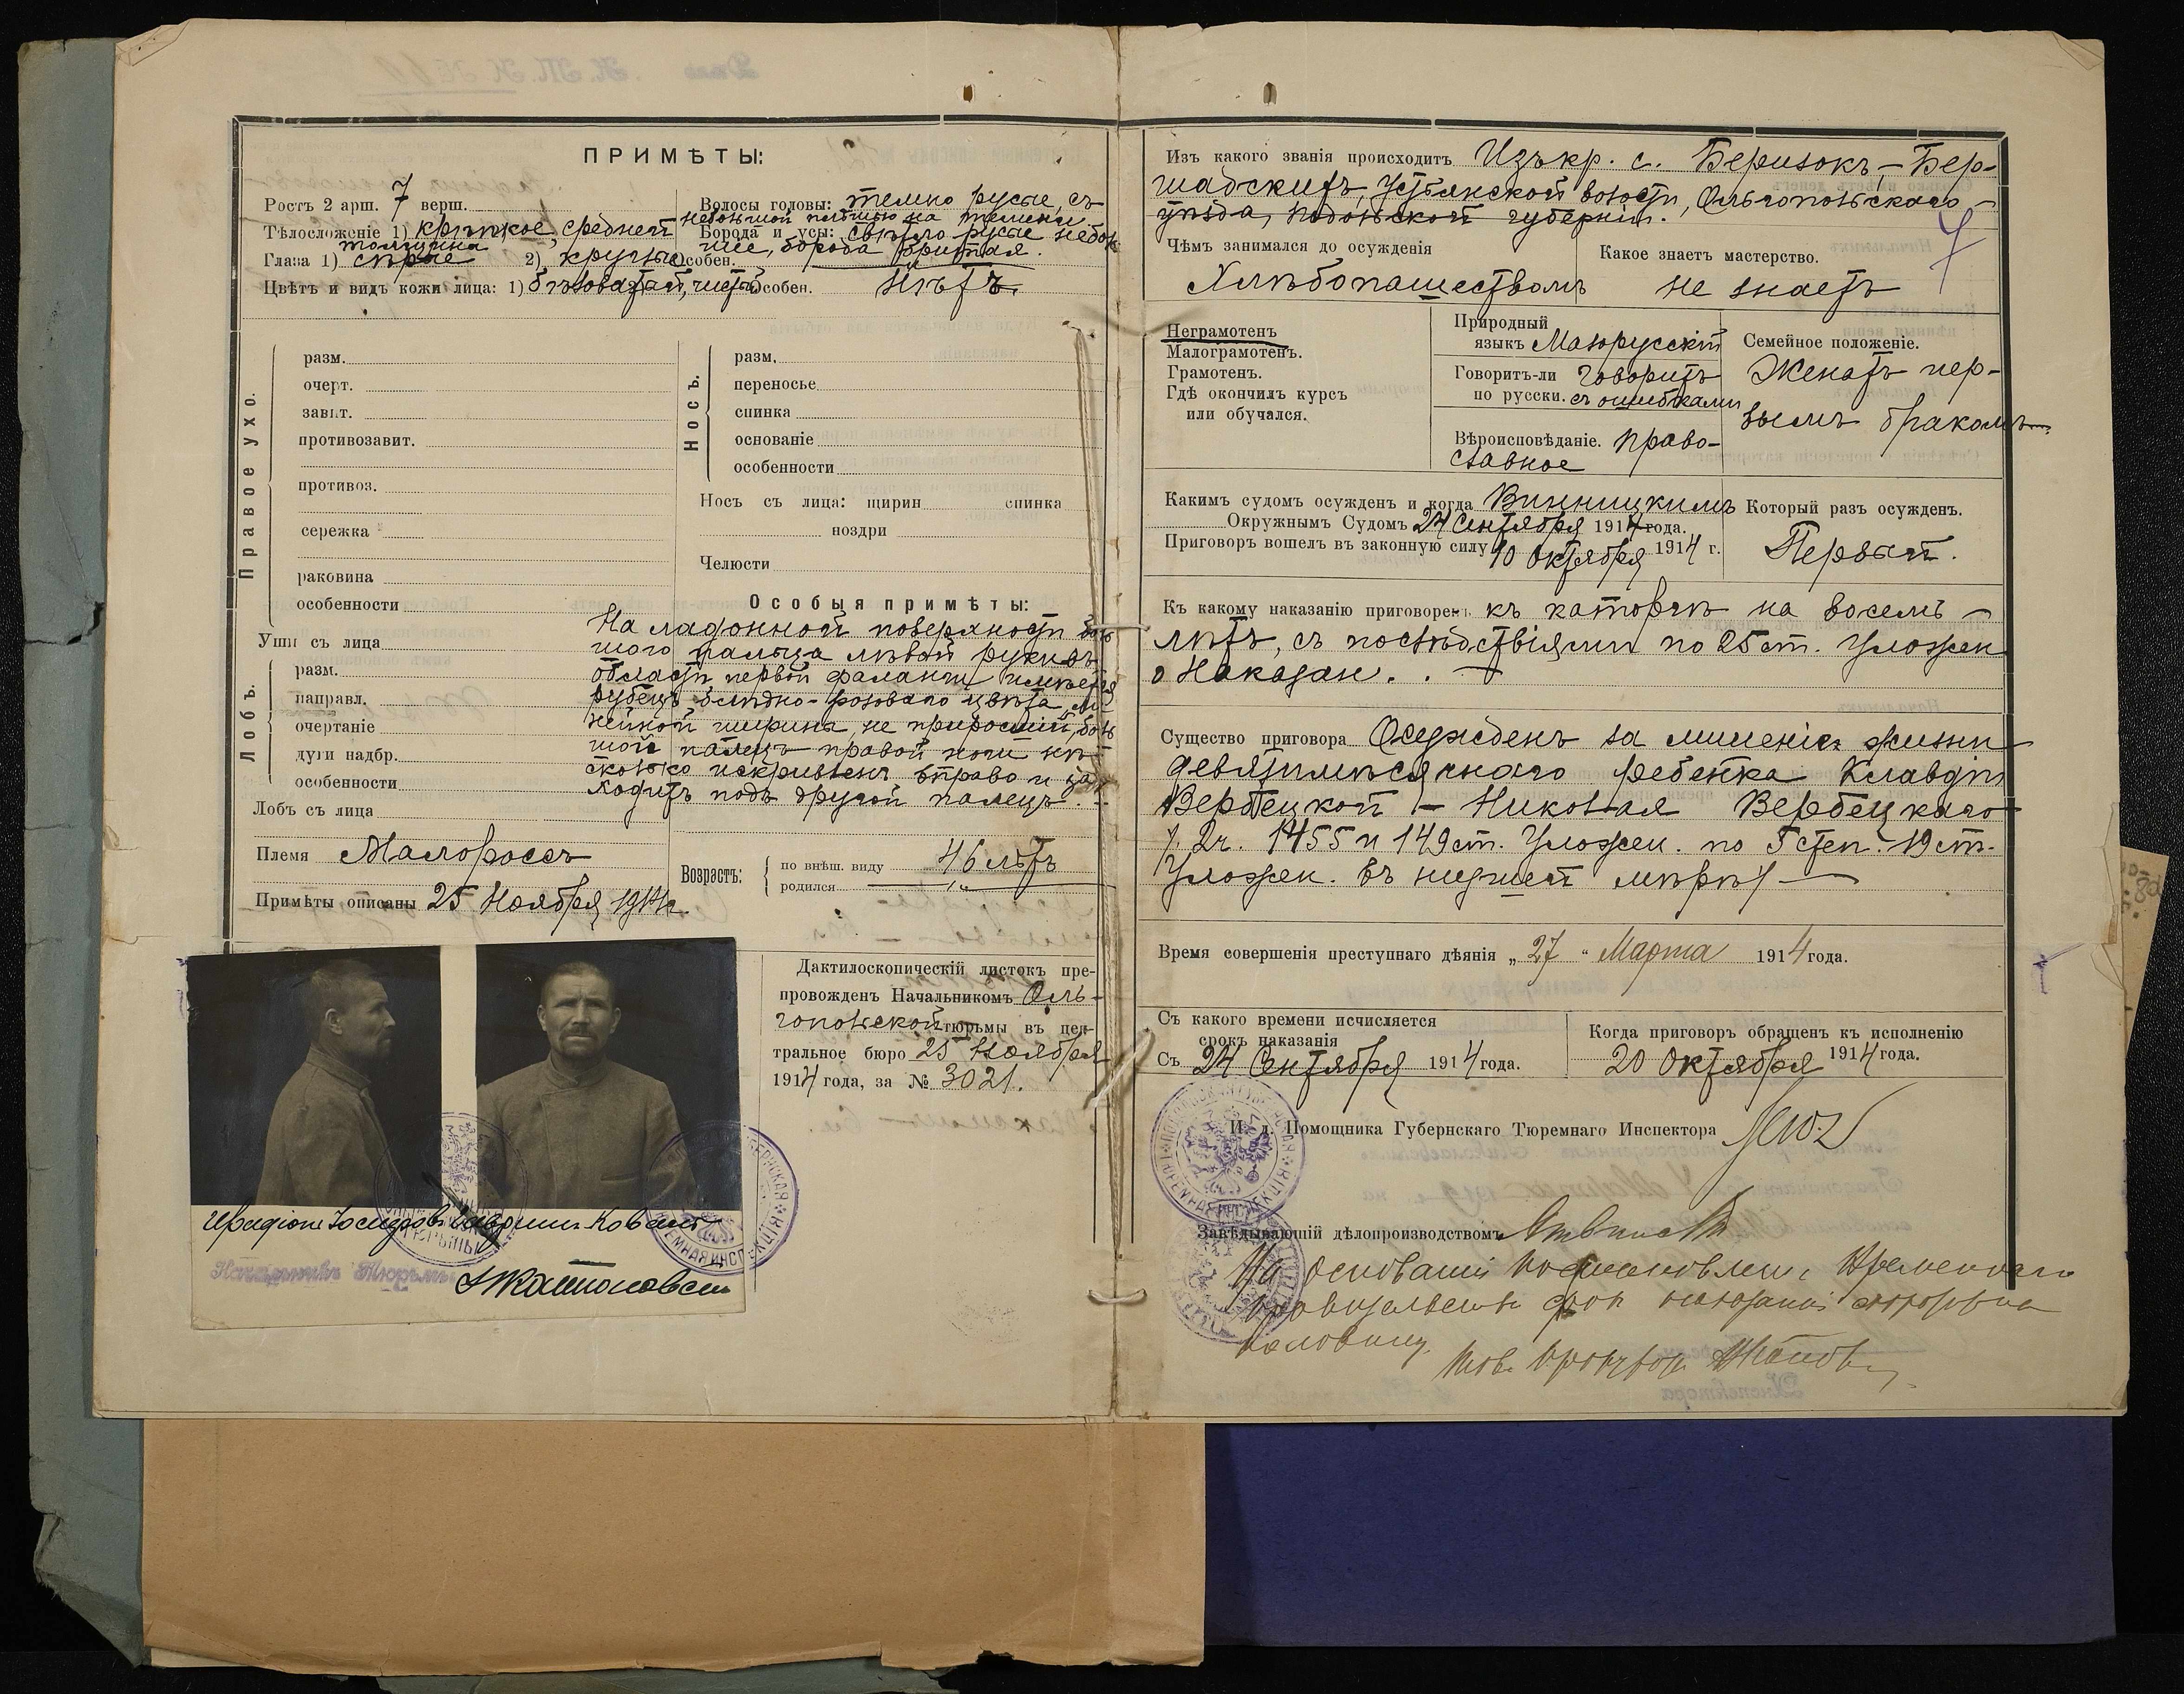 ПРИМѢТЫ:
Ростъ 2 арш. 7 верш.
Волосы головы: темно русые, съ
небольшой плѣшью на темени
Тѣлосложеніе 1) крѣпкое, средней
толщина
Борода и усы: свѣтло русые неболь
шіе, борода бритая.
Глаза 1) сѣрые 2) круглые Особен.
Цвѣтъ и видъ кожи лица: 1) бѣловатый, чистый Особен. Нѣтъ.
Правое ухо.
разм.
очерт.
завит.
противозавит.
противоз.
сережка
раковина
особенности
Носъ.
разм.
переносье
спинка
основаніе
особенности
Носъ съ лица: ширин спинка
ноздри
Челюсти
Уши съ лица
Лобъ.
разм.
направл.
очертаніе
дуги надбр.
особенности
Лобъ съ лица
Особыя примѣты:
На ладонной поверхности боль
шого пальца лѣвой руки въ
области первой фаланги имѣется
рубецъ блѣдно-розоваго цвѣта, ли
нейной ширина, не приросшій, боль
шой палецъ правой ноги нѣ-
сколько искривленъ вправо и за
ходитъ подъ другой палецъ.
Племя Малороссъ
Примѣты описаны 25 Ноября 1914 г.
Возрастъ:
по внѣш. виду 46 лѣтъ
родился
Дактилоскопическій листокъ пре-
провожденъ Начальникомъ Оль-
гопольской тюрьмы въ цен-
тральное бюро 25 Ноября
1914 года, за № 3021.
Иродіонъ Іосифовъ Гавриш Ковал
Начальникъ Тюрьмы
Изъ какого званія происходитъ Изъ кр. с. Беризокъ-Бер-
шадскихъ, Устьянской волости, Ольгопольскаго
уѣзда, Подольской губерніи.
7
Чѣмъ занимался до осужденія
Хлѣбопашествомъ
Какое знаетъ мастерство.
не знаетъ
Неграмотенъ
Малограмотенъ.
Грамотенъ.
Гдѣ окончилъ курсъ
или обучался.
Природный
языкъ Малорусскій
Говоритъ-ли говоритъ
по русски. съ ошибками
Вѣроисповѣданіе. право-
славное
Семейное положеніе.
Женатъ пер-
вымъ бракомъ
Какимъ судомъ осужденъ и когда Винницкимъ
Окружнымъ Судомъ 24 Сентября 1914 года.
Приговоръ вошелъ въ законную силу 10 Октября 1914 г.
Который разъ осужденъ.
Первый.
Къ какому наказанію приговоренъ къ каторгѣ на восемь
лѣтъ, съ послѣдствіями по 25 ст. Уложен
о Наказан.
Существо приговора Осужденъ за лишеніе жизни
девятимѣсячнаго ребенка Клавдіи
Вербецкой - Николая Вербецкаго
2 ч. 1455 и 149 ст. Уложен. по 5 степ. 19 ст.
Уложен. въ низшей мѣрѣ
Время совершенія преступнаго дѣянія „27“ Марта 1914 года.
Съ какого времени исчисляется
срокъ наказанія
Съ 24 Сентября 1914 года.
Когда приговоръ обращенъ къ исполненію
20 Октября 1914 года.
И. д. Помощника Губернскаго Тюремнаго Инспектора
Завѣдывающій дѣлопроизводствомъ
На основаніи постановлен. Временнаго
Правительства срок наказанія сокращенъ на
половину.
Тов. Прокурора